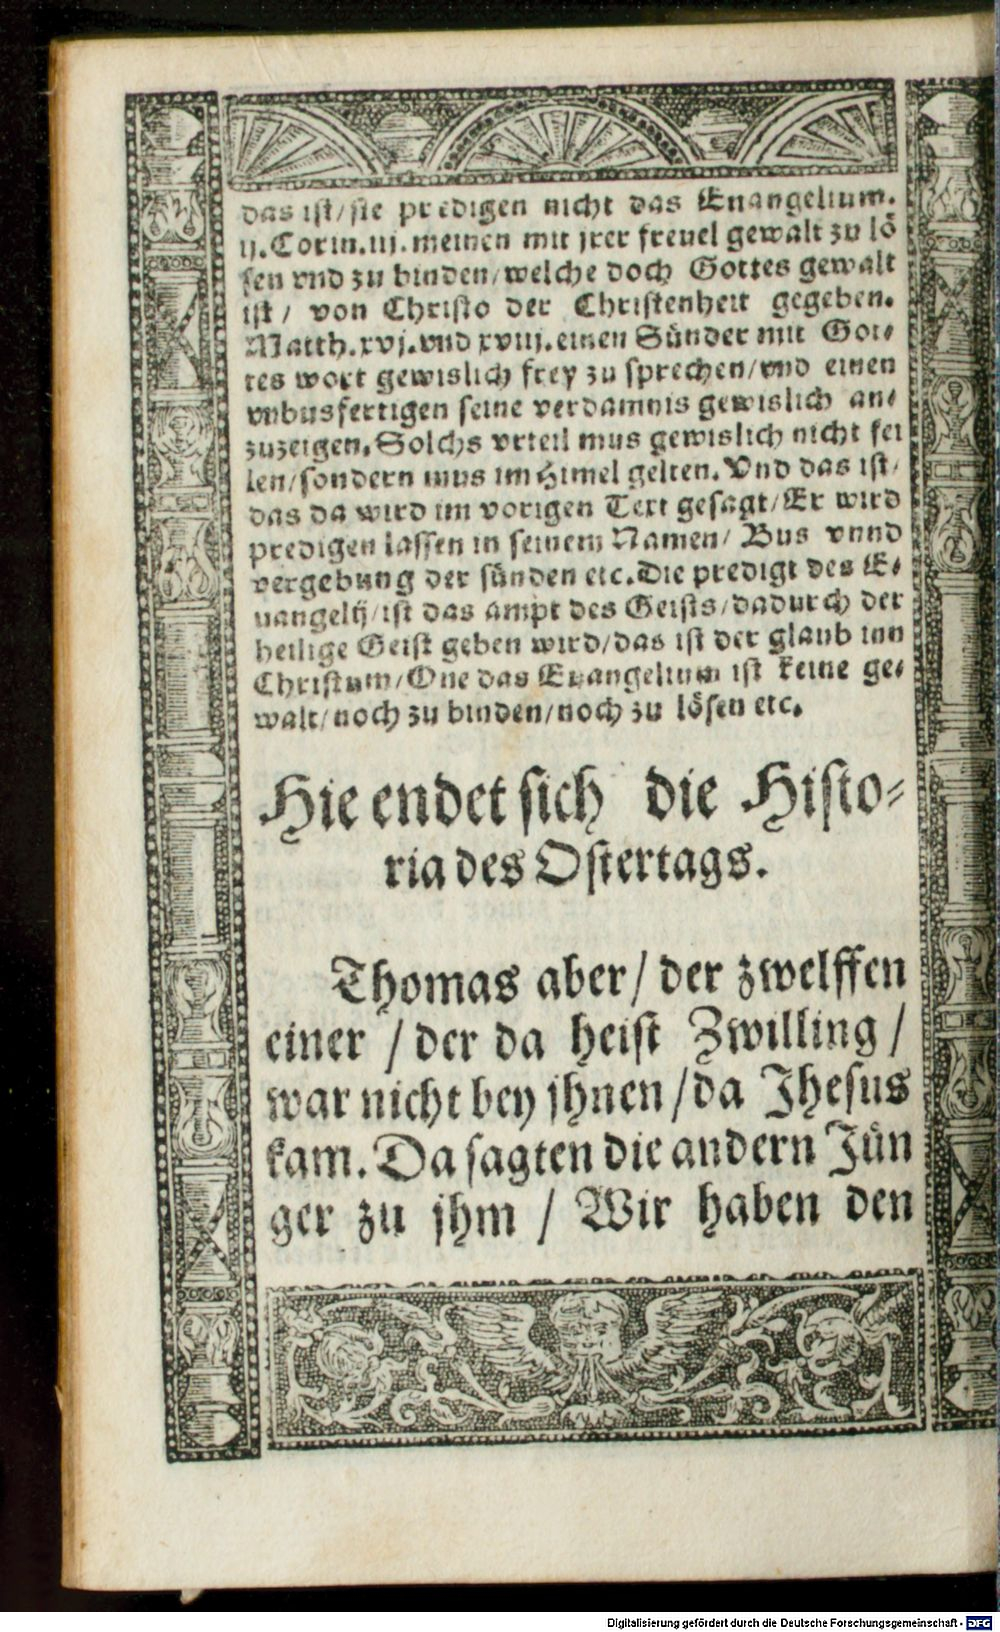 das ist/sie predigen nicht das Euangelium.
ij.Corin.iij.meinen mit jrer freuel gewalt zu lö
sen vnd zu binden/welche doch Gottes gewalt
ist/ von Christo der Christenheit gegeben.
Matth.xvj.vnd xviij.einen Sünder mit Got⸗
tes wort gewislich frey zu sprechen/vnd einen
vnbusfertigen seine verdamnis gewislich an⸗
zuzeigen.Solchs vrteil mus gewislich nicht fei
len/sondern mus im Himel gelten.Vnd das ist/
das da wird im vorigen Text gesagt/Er wird
predigen lassen in seinem Namen/ Bus vnnd
vergebung der sünden etc.Die predigt des E⸗
uangelij/ist das ampt des Geists/dadurch der
heilige Geist geben wird/das ist der glaub inn
Christum/One das Euangelium ist keine ge⸗
walt/noch zu binden/noch zu lösen etc.
Hie endet sich die Histo⸗
ria des Ostertags.
Thomas aber/ der zwelffen
einer / der da heist Zwilling /
war nicht bey jhnen/da Jhesus
kam.Da sagten die andern Jün
ger zu jhm / Wir haben den
Digitalisierung gefördert durch die Deutsche Forschungsgemeinschaft - DFG